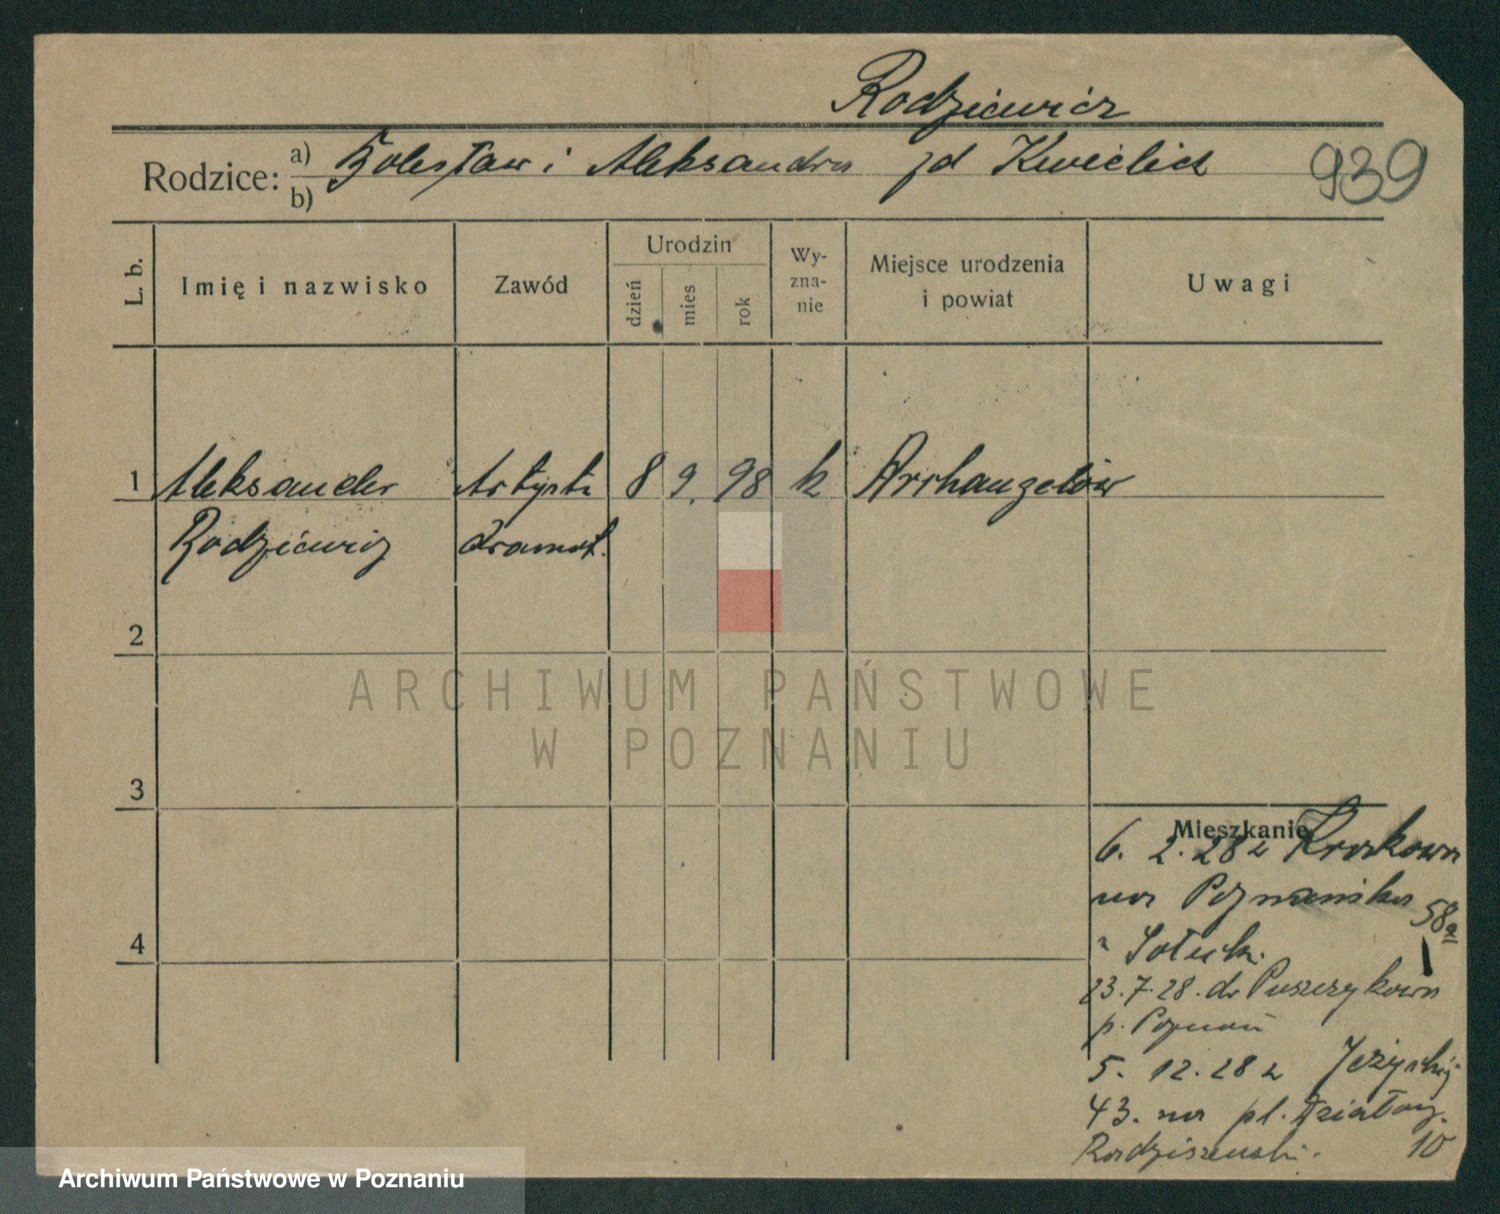 Rodziewicz
Rodzice: a) Bolesław i Aleksandra zd Kwiclich 939
b)
L. b.
Imię i nazwisko
Zawód
Urodzin
dzień
mies
rok
Wy-
zna-
nie
Miejsce urodzenia
i powiat
Uwagi
1 Aleksander Artysta 8 9. 98 k Archangelów
Rodziewicz dramat.
2
ARCHIWUM PAŃSTWOWE
W POZNANIU
3
Mieszkanie
6. 2. 28 z Krakowa
na Poznańska 58a
23.7.28. do Puszczykowa
p. Poznań
5. 12. 28 z Jeżyckiej
43. na pl. Działowy.
Radziszewski. 10
4
Archiwum Państwowe w Poznaniu